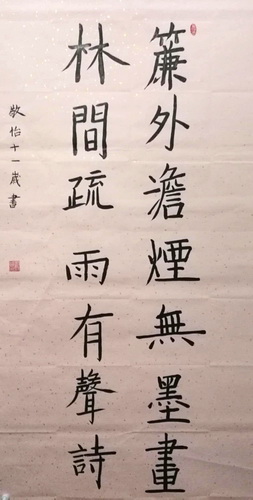 簾外澹煙無墨畫
林間疏雨有聲詩
敬怡十一歲書